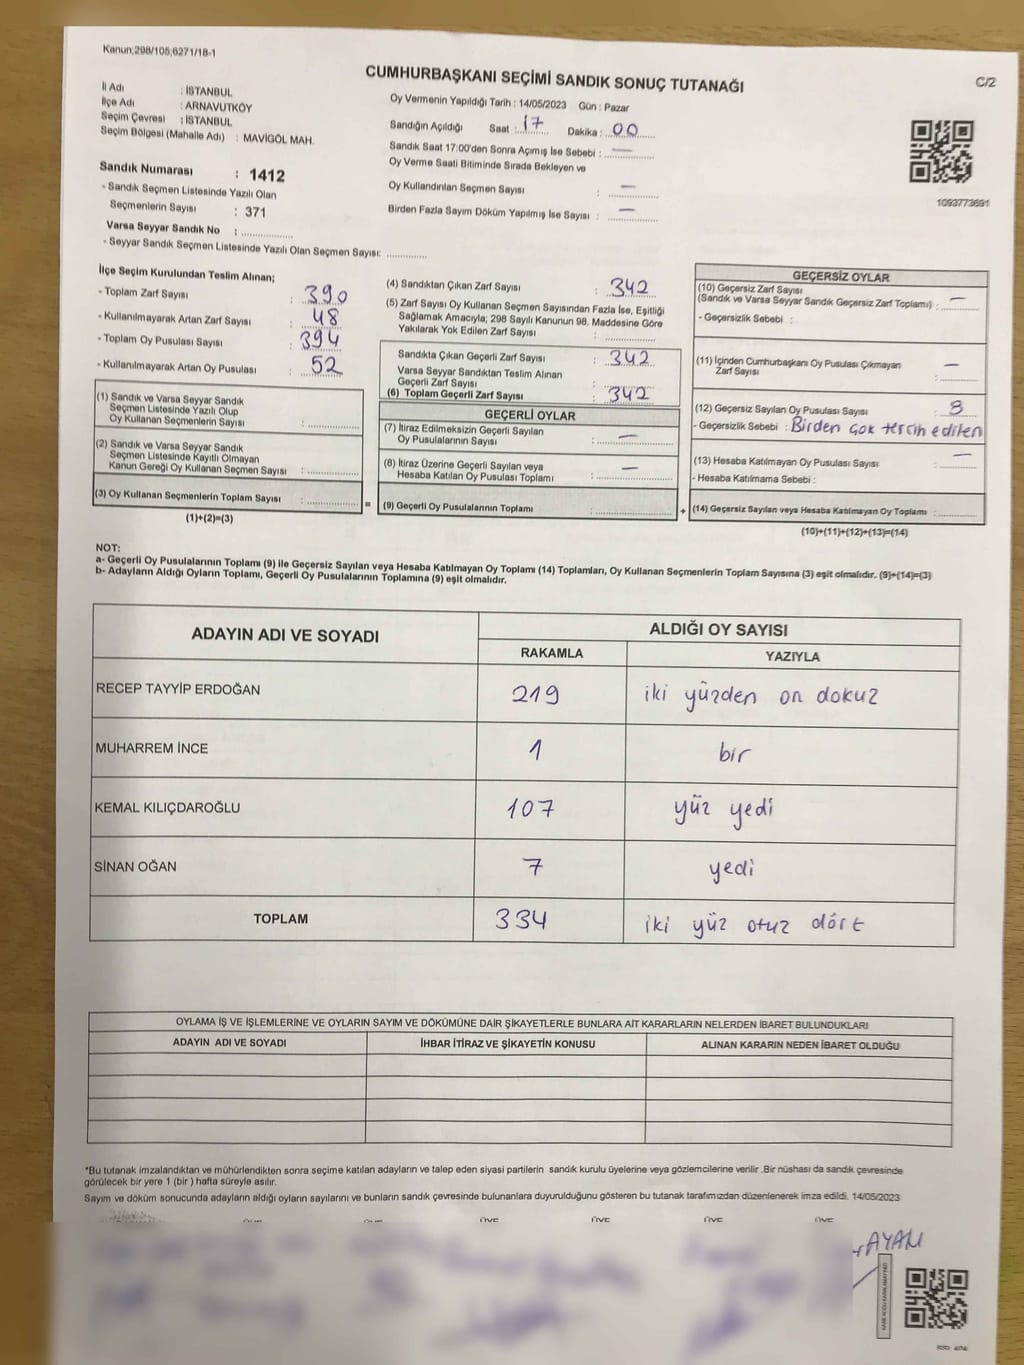 Kanun;298/105;6271/18-1
CUMHURBAŞKANI SEÇİMİ SANDIK SONUÇ TUTANAĞI
C/2
İl Adı : İSTANBUL
İlçe Adı : ARNAVUTKÖY
Seçim Çevresi : İSTANBUL
Seçim Bölgesi (Mahalle Adı) : MAVİGÖL MAH.
Sandık Numarası : 1412
- Sandık Seçmen Listesinde Yazılı Olan
Seçmenlerin Sayısı : 371
Varsa Seyyar Sandık No :
- Seyyar Sandık Seçmen Listesinde Yazılı Olan Seçmen Sayısı:
Oy Vermenin Yapıldığı Tarih : 14/05/2023 Gün : Pazar
Sandığın Açıldığı Saat : 17 Dakika : 00
Sandık Saat 17:00'den Sonra Açımış İse Sebebi : —
Oy Verme Saati Bitiminde Sırada Bekleyen ve
Oy Kullandırılan Seçmen Sayısı : —
Birden Fazla Sayım Döküm Yapılmış İse Sayısı : —
1093773691
İlçe Seçim Kurulundan Teslim Alınan;
- Toplam Zarf Sayısı : 390
- Kullanılmayarak Artan Zarf Sayısı : 48
- Toplam Oy Pusulası Sayısı : 394
- Kullanılmayarak Artan Oy Pusulası : 52
(1) Sandık ve Varsa Seyyar Sandık
Seçmen Listesinde Yazılı Olup
Oy Kullanan Seçmenlerin Sayısı :
(2) Sandık ve Varsa Seyyar Sandık
Seçmen Listesinde Kayıtlı Olmayan
Kanun Gereği Oy Kullanan Seçmen Sayısı :
(3) Oy Kullanan Seçmenlerin Toplam Sayısı : =
(1)+(2)=(3)
(4) Sandıktan Çıkan Zarf Sayısı : 342
(5) Zarf Sayısı Oy Kullanan Seçmen Sayısından Fazla İse, Eşitliği
Sağlamak Amacıyla; 298 Sayılı Kanunun 98. Maddesine Göre
Yakılarak Yok Edilen Zarf Sayısı :
Sandıkta Çıkan Geçerli Zarf Sayısı : 342
Varsa Seyyar Sandıktan Teslim Alınan
Geçerli Zarf Sayısı :
(6) Toplam Geçerli Zarf Sayısı : 342
GEÇERLİ OYLAR
(7) İtiraz Edilmeksizin Geçerli Sayılan
Oy Pusulalarının Sayısı : —
(8) İtiraz Üzerine Geçerli Sayılan veya
Hesaba Katılan Oy Pusulası Toplamı : —
(9) Geçerli Oy Pusulalarının Toplamı : +
GEÇERSİZ OYLAR
(10) Geçersiz Zarf Sayısı
(Sandık ve Varsa Seyyar Sandık Geçersiz Zarf Toplamı) : —
- Geçersizlik Sebebi :
(11) İçinden Cumhurbaşkanı Oy Pusulası Çıkmayan
Zarf Sayısı : —
(12) Geçersiz Sayılan Oy Pusulası Sayısı : 8
- Geçersizlik Sebebi : Birden çok tercih edilen
(13) Hesaba Katılmayan Oy Pusulası Sayısı : —
- Hesaba Katılmama Sebebi :
(14) Geçersiz Sayılan veya Hesaba Katılmayan Oy Toplamı :
(10)+(11)+(12)+(13)=(14)
NOT:
a- Geçerli Oy Pusulalarının Toplamı (9) ile Geçersiz Sayılan veya Hesaba Katılmayan Oy Toplamı (14) Toplamları, Oy Kullanan Seçmenlerin Toplam Sayısına (3) eşit olmalıdır. (9)+(14)=(3)
b- Adayların Aldığı Oyların Toplamı, Geçerli Oy Pusulalarının Toplamına (9) eşit olmalıdır.
ADAYIN ADI VE SOYADI ALDIĞI OY SAYISI
RAKAMLA YAZIYLA
RECEP TAYYİP ERDOĞAN 219 iki yüzden on dokuz
MUHARREM İNCE 1 bir
KEMAL KILIÇDAROĞLU 107 yüz yedi
SİNAN OĞAN 7 yedi
TOPLAM 334 iki yüz otuz dört
OYLAMA İŞ VE İŞLEMLERİNE VE OYLARIN SAYIM VE DÖKÜMÜNE DAİR ŞİKAYETLERLE BUNLARA AİT KARARLARIN NELERDEN İBARET BULUNDUKLARI
ADAYIN ADI VE SOYADI İHBAR İTİRAZ VE ŞİKAYETİN KONUSU ALINAN KARARIN NEDEN İBARET OLDUĞU
*Bu tutanak imzalandıktan ve mühürlendikten sonra seçime katılan adayların ve talep eden siyasi partilerin sandık kurulu üyelerine veya gözlemcilerine verilir .Bir nüshası da sandık çevresinde
görülecek bir yere 1 (bir ) hafta süreyle asılır.
Sayım ve döküm sonucunda adayların aldığı oyların sayılarını ve bunların sandık çevresinde bulunanlara duyurulduğunu gösteren bu tutanak tarafımızdan düzenlenerek imza edildi. 14/05/2023
ÜYE ÜYE ÜYE ÜYE
AYAN